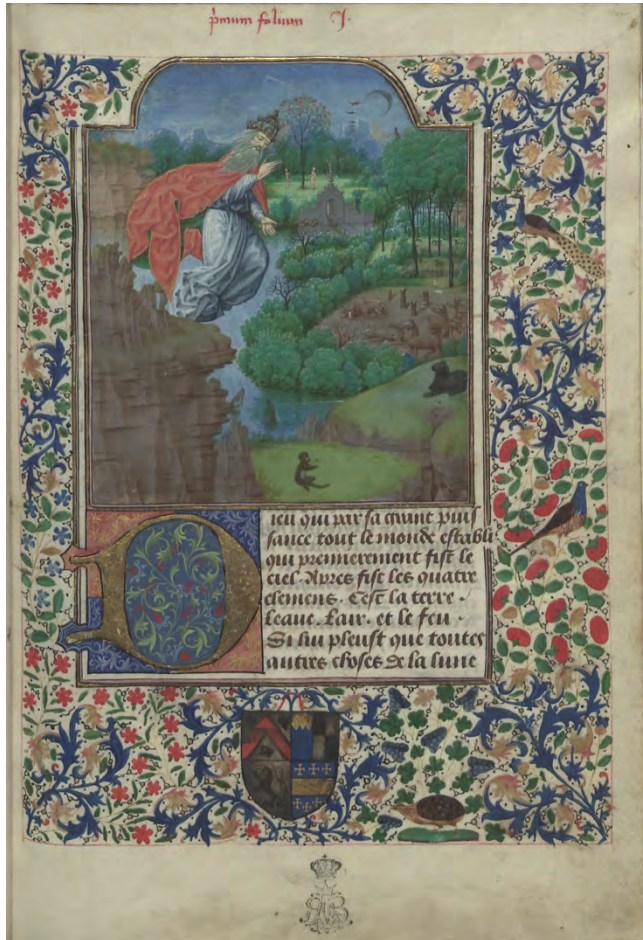 primum folium J.
Dieu qui par sa grant puis
sance tout le monde establi
qui premierement fist le
ciel. Apres fist les quatre
elemens. Cest la terre.
Leaue. Lair. et le feu.
Si lui pleust que toutes
autres choses de la lune